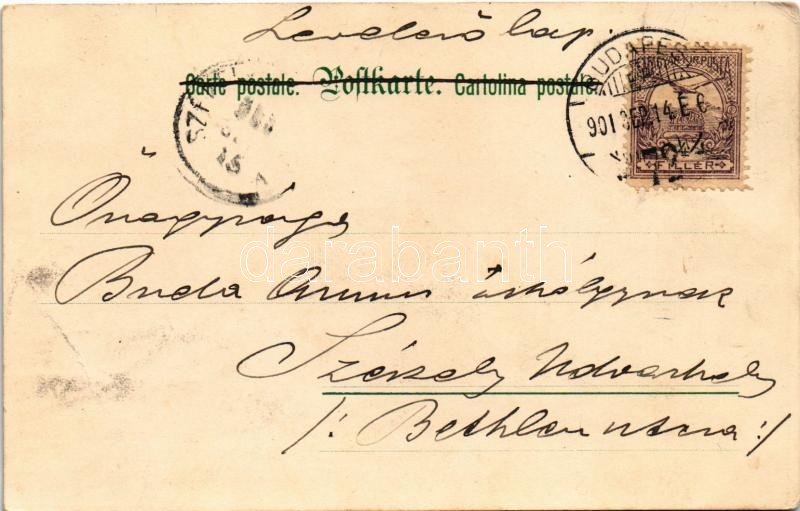 Levelező lap.
Carte postale. Postkarte. Cartolina postale.
BUDAPEST
901 SEP 14 E 6
MAGYAR KIR. POSTA
FILLÉR
SZÉ
15
Őnagysága
Buda úrhölgynek
Székely Udvarhely
/: Bethlen utcza :/
darabanth